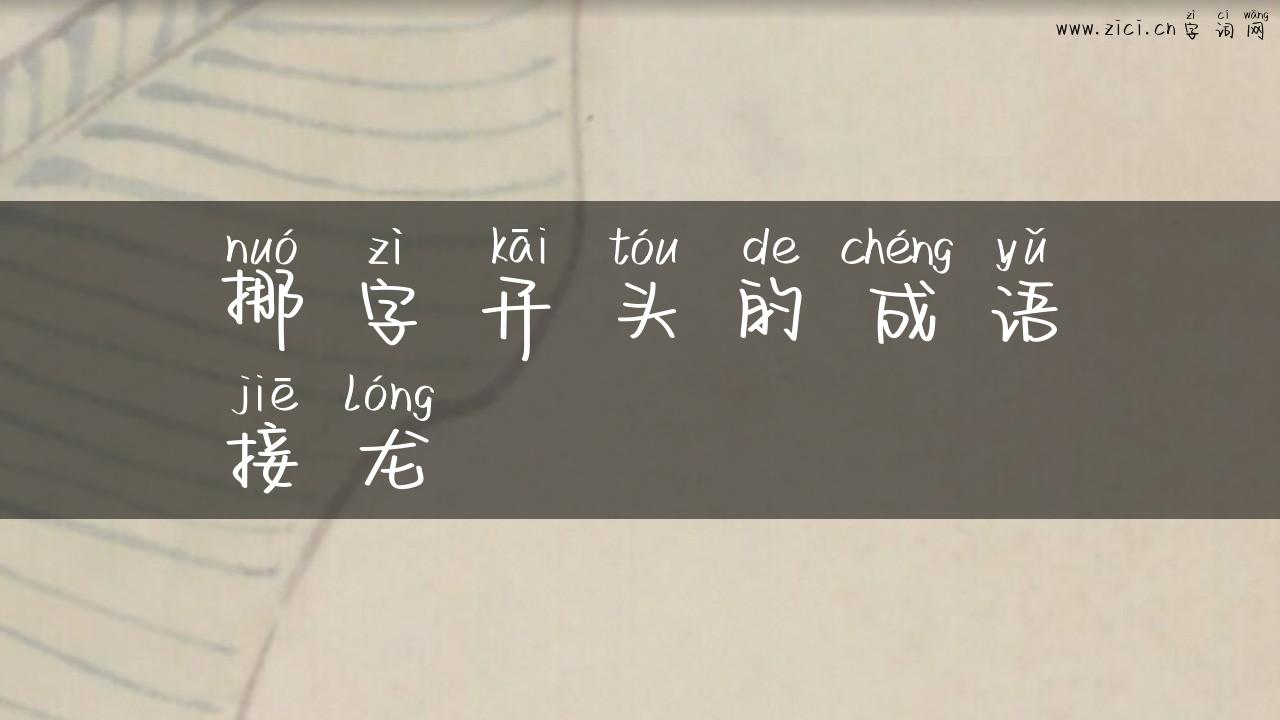 zì cí wǎng
www.zici.cn 字词网
nuó zì kāi tóu de chéng yǔ
挪字开头的成语
jiē lóng
接龙